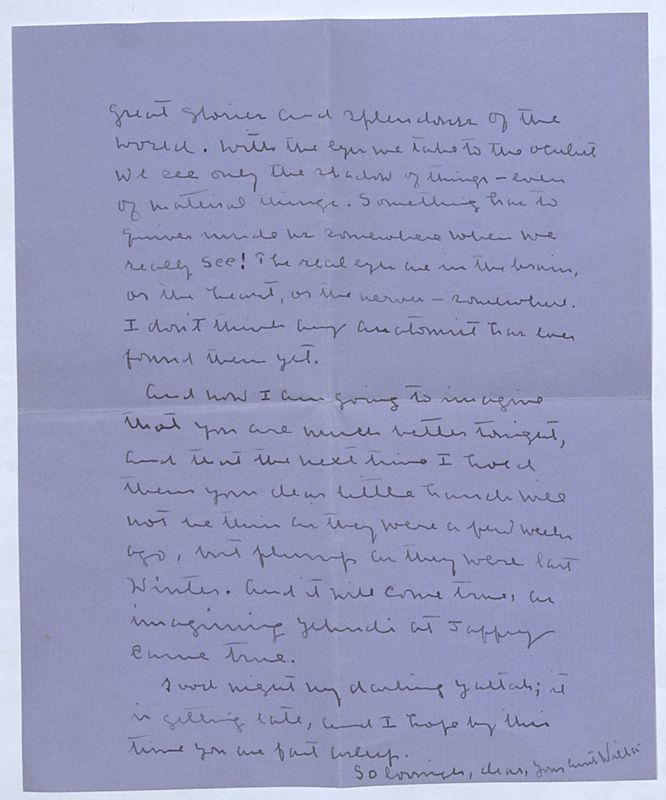 great glories and splendours of the
world. With the eyes we take to the oculist
we see only the shadow of things – even
of material things. Something has to
quiver inside us somewhere when we
really see! The real eyes are in the brain,
or the heart, or the nerves – somewhere.
I don't think any anatomist has ever
found them yet.
And now I am going to imagine
that you are much better tonight,
and that the next time I hold
them your dear little hands will
not be thin as they were a few weeks
ago, but plump as they were last
Winter. And it will come true, as
imagining Yehudi at Jaffrey
came true.
Good night my darling Yaltah; it
is getting late, and I hope by this
time you are fast asleep.
So lovingly, dear, your Aunt Willa